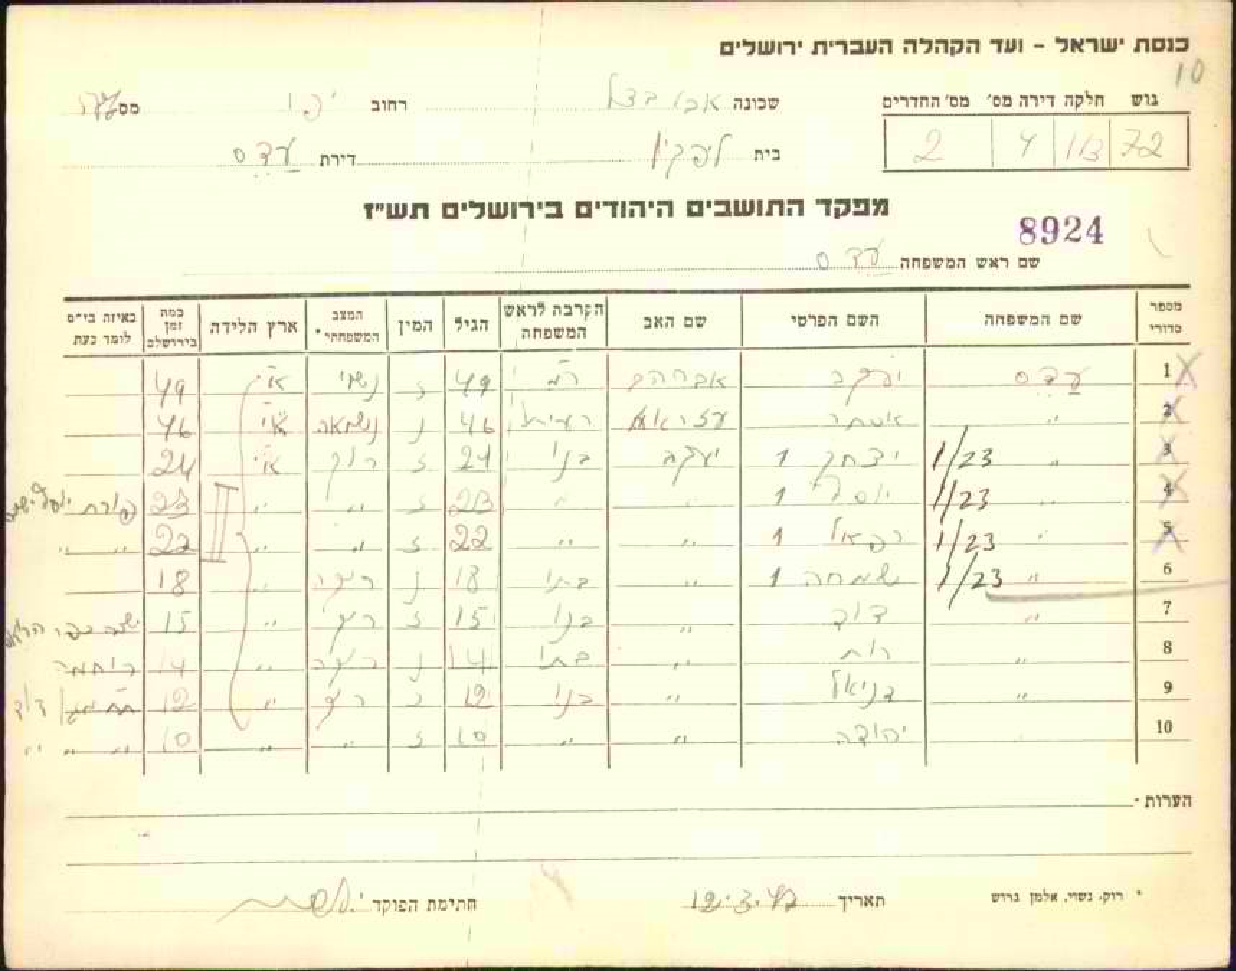 כנסת ישראל - ועד הקהלה העברית ירושלים
10
גוש חלקה דירה מס' מס' החדרים
72 113 4 2
שכונה אבו בצל רחוב יפו מס
בית ליפקין דירת עדס
מפקד התושבים היהודים בירושלים תש"ז
8924
שם ראש המשפחה עדס
מספר סדורי שם המשפחה השם הפרטי שם האב הקרבה לראש המשפחה הגיל המין המצב המשפחתי* ארץ הלידה כמה זמן בירושלם באיזה בי"ס לומד כעת
1 עדס יעקב אברהם 49 ז נשוי א"י 49
2 " אסתר עזרא 46 נ נשואה א"י 46
3 " 1/23 יצחק 1 יעקב בנו 24 ז רוק א"י 24
4 " 1/23 יוסף 1 " " 23 ז " " 23 פורת יוסף
5 " 1/23 רפאל 1 " " 22 ז " " 22 " "
6 " 1/23 שמחה 1 " בתו 18 נ רוקה " 18
7 " דוד " בנו 15 ז רוק " 15
8 " רות " בתו 14 נ רוקה " 14 רוחמה
9 " דניאל " בנו 12 ז רוק " 12
10 יהודה " " 10 ז " " 10 " " "
הערות
* רוק, נשוי, אלמן גרוש תאריך 12.3.47 חתימת הפוקד